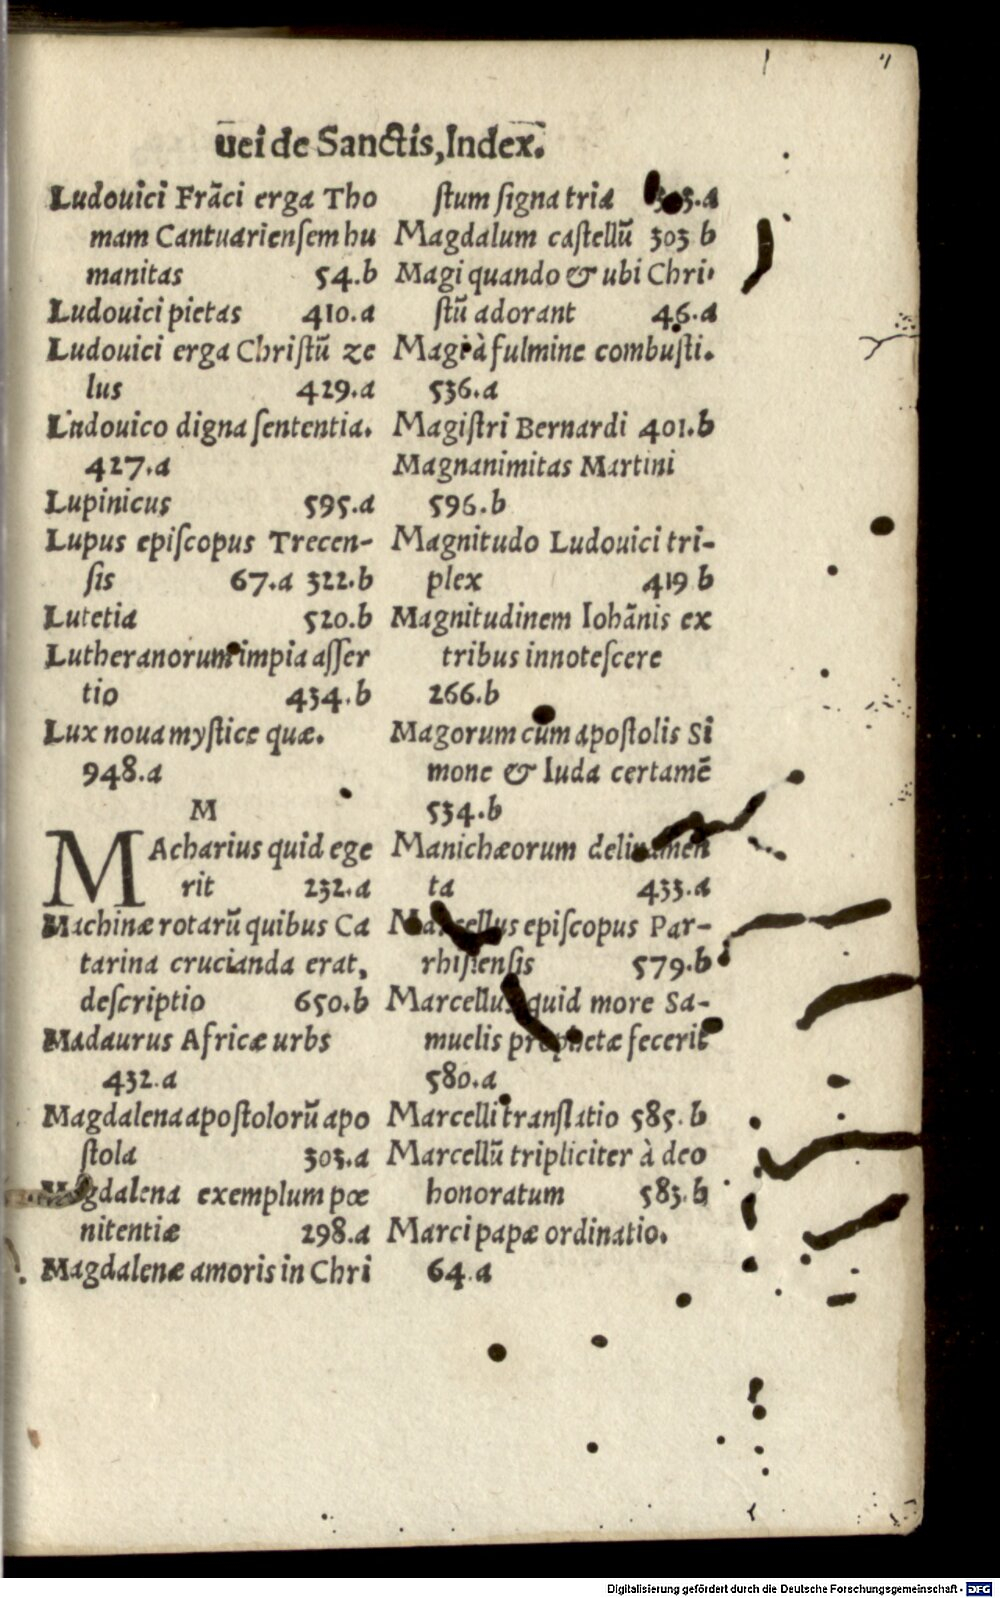 ūei de Sanctis, Index.
Ludouici Frāci erga Tho
mam Cantuariensem hu
manitas 54.b
Ludouici pietas 410.a
Ludouici erga Christū ze
lus 429.a
Ludouico digna sententia.
427.a
Lupinicus 595.a
Lupus episcopus Trecen-
sis 67.a 322.b
Lutetia 520.b
Lutheranorum impia asser
tio 434.b
Lux noua mystice quæ.
948.a
M
MAcharius quid ege
rit 232.a
Machinæ rotarū quibus Ca
tarina crucianda erat,
descriptio 650.b
Madaurus Africæ urbs
432.a
Magdalena apostolorū apo
stola 303.a
Magdalena exemplum pœ
nitentiæ 298.a
Magdalenæ amoris in Chri
stum signa tria
Magdalum castellū 303 b
Magi quando & ubi Chri-
stū adorant 46.a
Magi à fulmine combusti.
536.a
Magistri Bernardi 401.b
Magnanimitas Martini
596.b
Magnitudo Ludouici tri-
plex 419 b
Magnitudinem Iohānis ex
tribus innotescere
266.b
Magorum cum apostolis Si
mone & Iuda certamē
534.b
Manichæorum deliramen
ta 433.a
Marcellus episcopus Par-
rhisiensis 579.b
Marcellus quid more Sa-
muelis prophetæ fecerit
580.a
Marcelli translatio 585.b
Marcellū tripliciter à deo
honoratum 583.b
Marci papæ ordinatio.
64.a
Digitalisierung gefördert durch die Deutsche Forschungsgemeinschaft - DFG